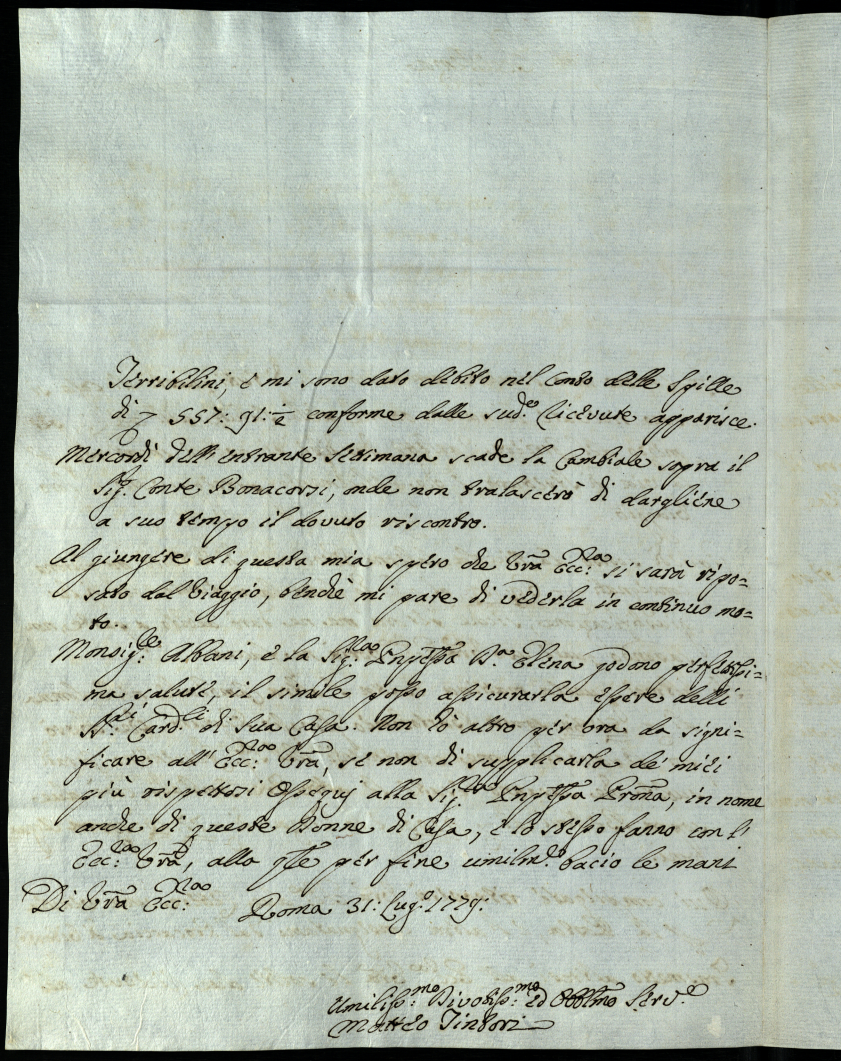 Terribilini, e mi sono dato debito nel Conto delle Spille
di 557: 91:½ conforme dalle sud.e Ricevute apparisce.
Mercordì dell'entrante Settimana scade la Cambiale sopra il
Sig. Conte Bonacorsi, onde non tralascerò di dargliene
a suo tempo il dovuto riscontro.
Al giungere di questa mia spero che Vrã Ecc:za si sarà ripo=
sato dal Viaggio, benchè mi pare di vederla in continuo mo=
to.
Monsig:re Albani, e la Sig:ra Pnpessa D.a Elena godono perfettissi=
ma salute, il simile posso assicurarla essere delli
Card:li di Sua Casa. Non hò altro per ora da signi=
ficare all'Ecc:za Vrã, se non di supplicarla de' miei
più rispettosi Ossequj alla Sig:ra Pnpessa Prõna, in nome
anche di queste Donne di Casa, e lo stesso fanno con l'
Ecc:za Vrã, alla qle per fine umilm.e bacio le mani
Di Vrã Ecc:za Roma 31: Lug.o 1779:
Umiliss:mo Divotiss:mo ed Obblmo Serv.e
Matteo Tintori